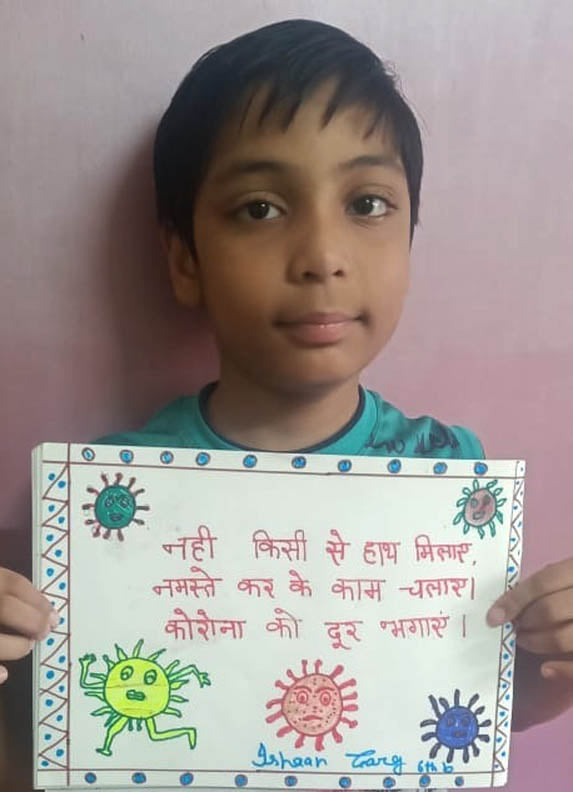 नही किसी से हाथ मिलाए,
नमस्ते कर के काम चलाए।
कोरोना को दूर भगाएं।
Ishaan Garg 6th b